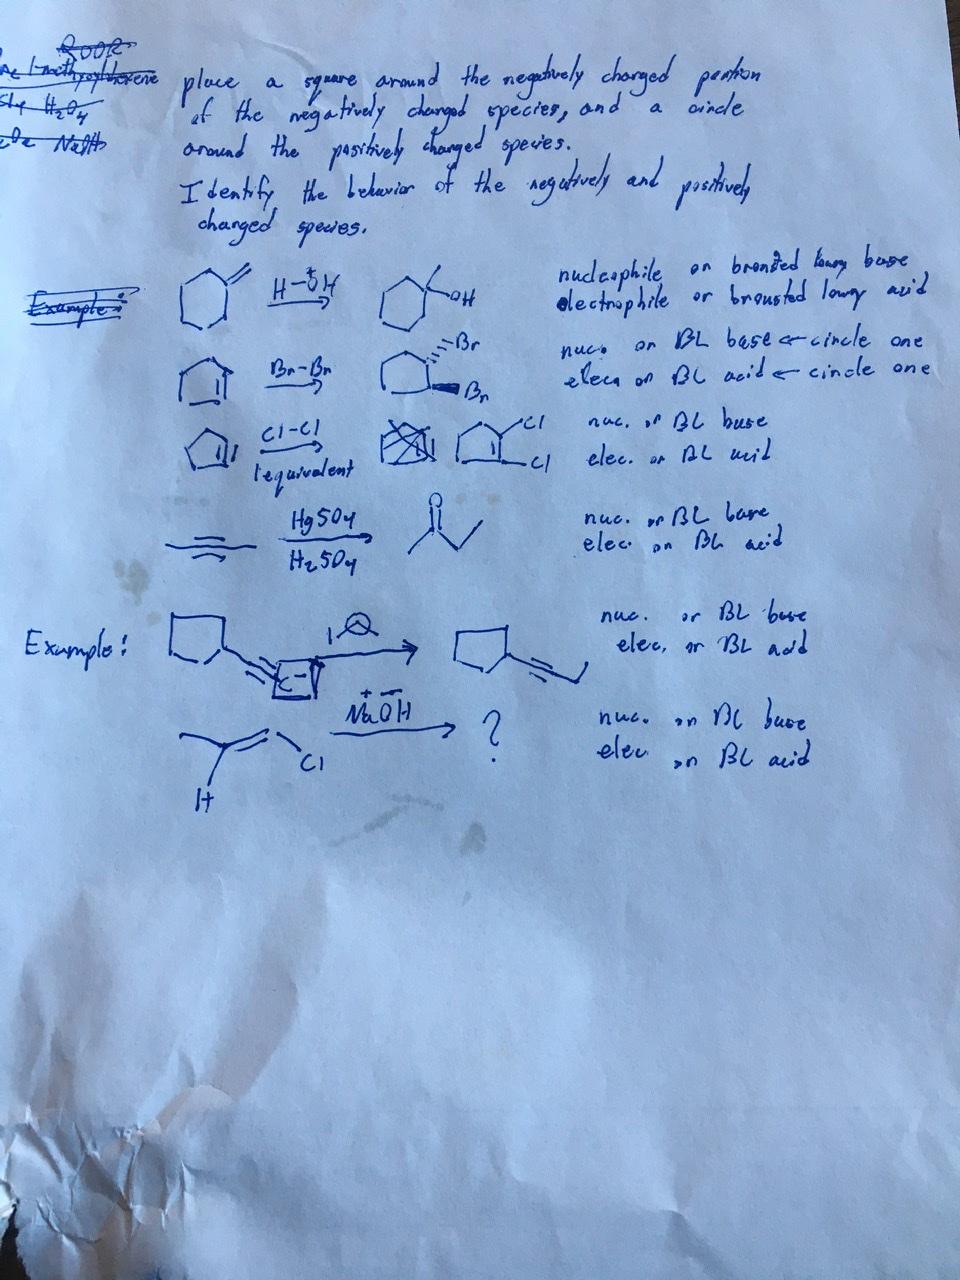 ROOR
1-methylcyclohexene
H2SO4
NaOH
place a square around the negatively charged portion
of the negatively charged species, and a circle
around the positively charged species.
Identify the behavior of the negatively and positively
charged species.
Example:
H-OH
+
OH
nucleophile or bronsted lowry base
electrophile or bronsted lowry acid
Br-Br
Br
Br
nuc. or BL base ← circle one
elec. or BL acid ← circle one
Cl-Cl
1 equivalent
Cl
Cl
nuc. or BL base
elec. or BL acid
HgSO4
H2SO4
O
nuc. or BL base
elec. or BL acid
Example:
C-
I
nuc. or BL base
elec. or BL acid
H
Cl
+ -
NaOH
?
nuc. or BL base
elec or BL acid